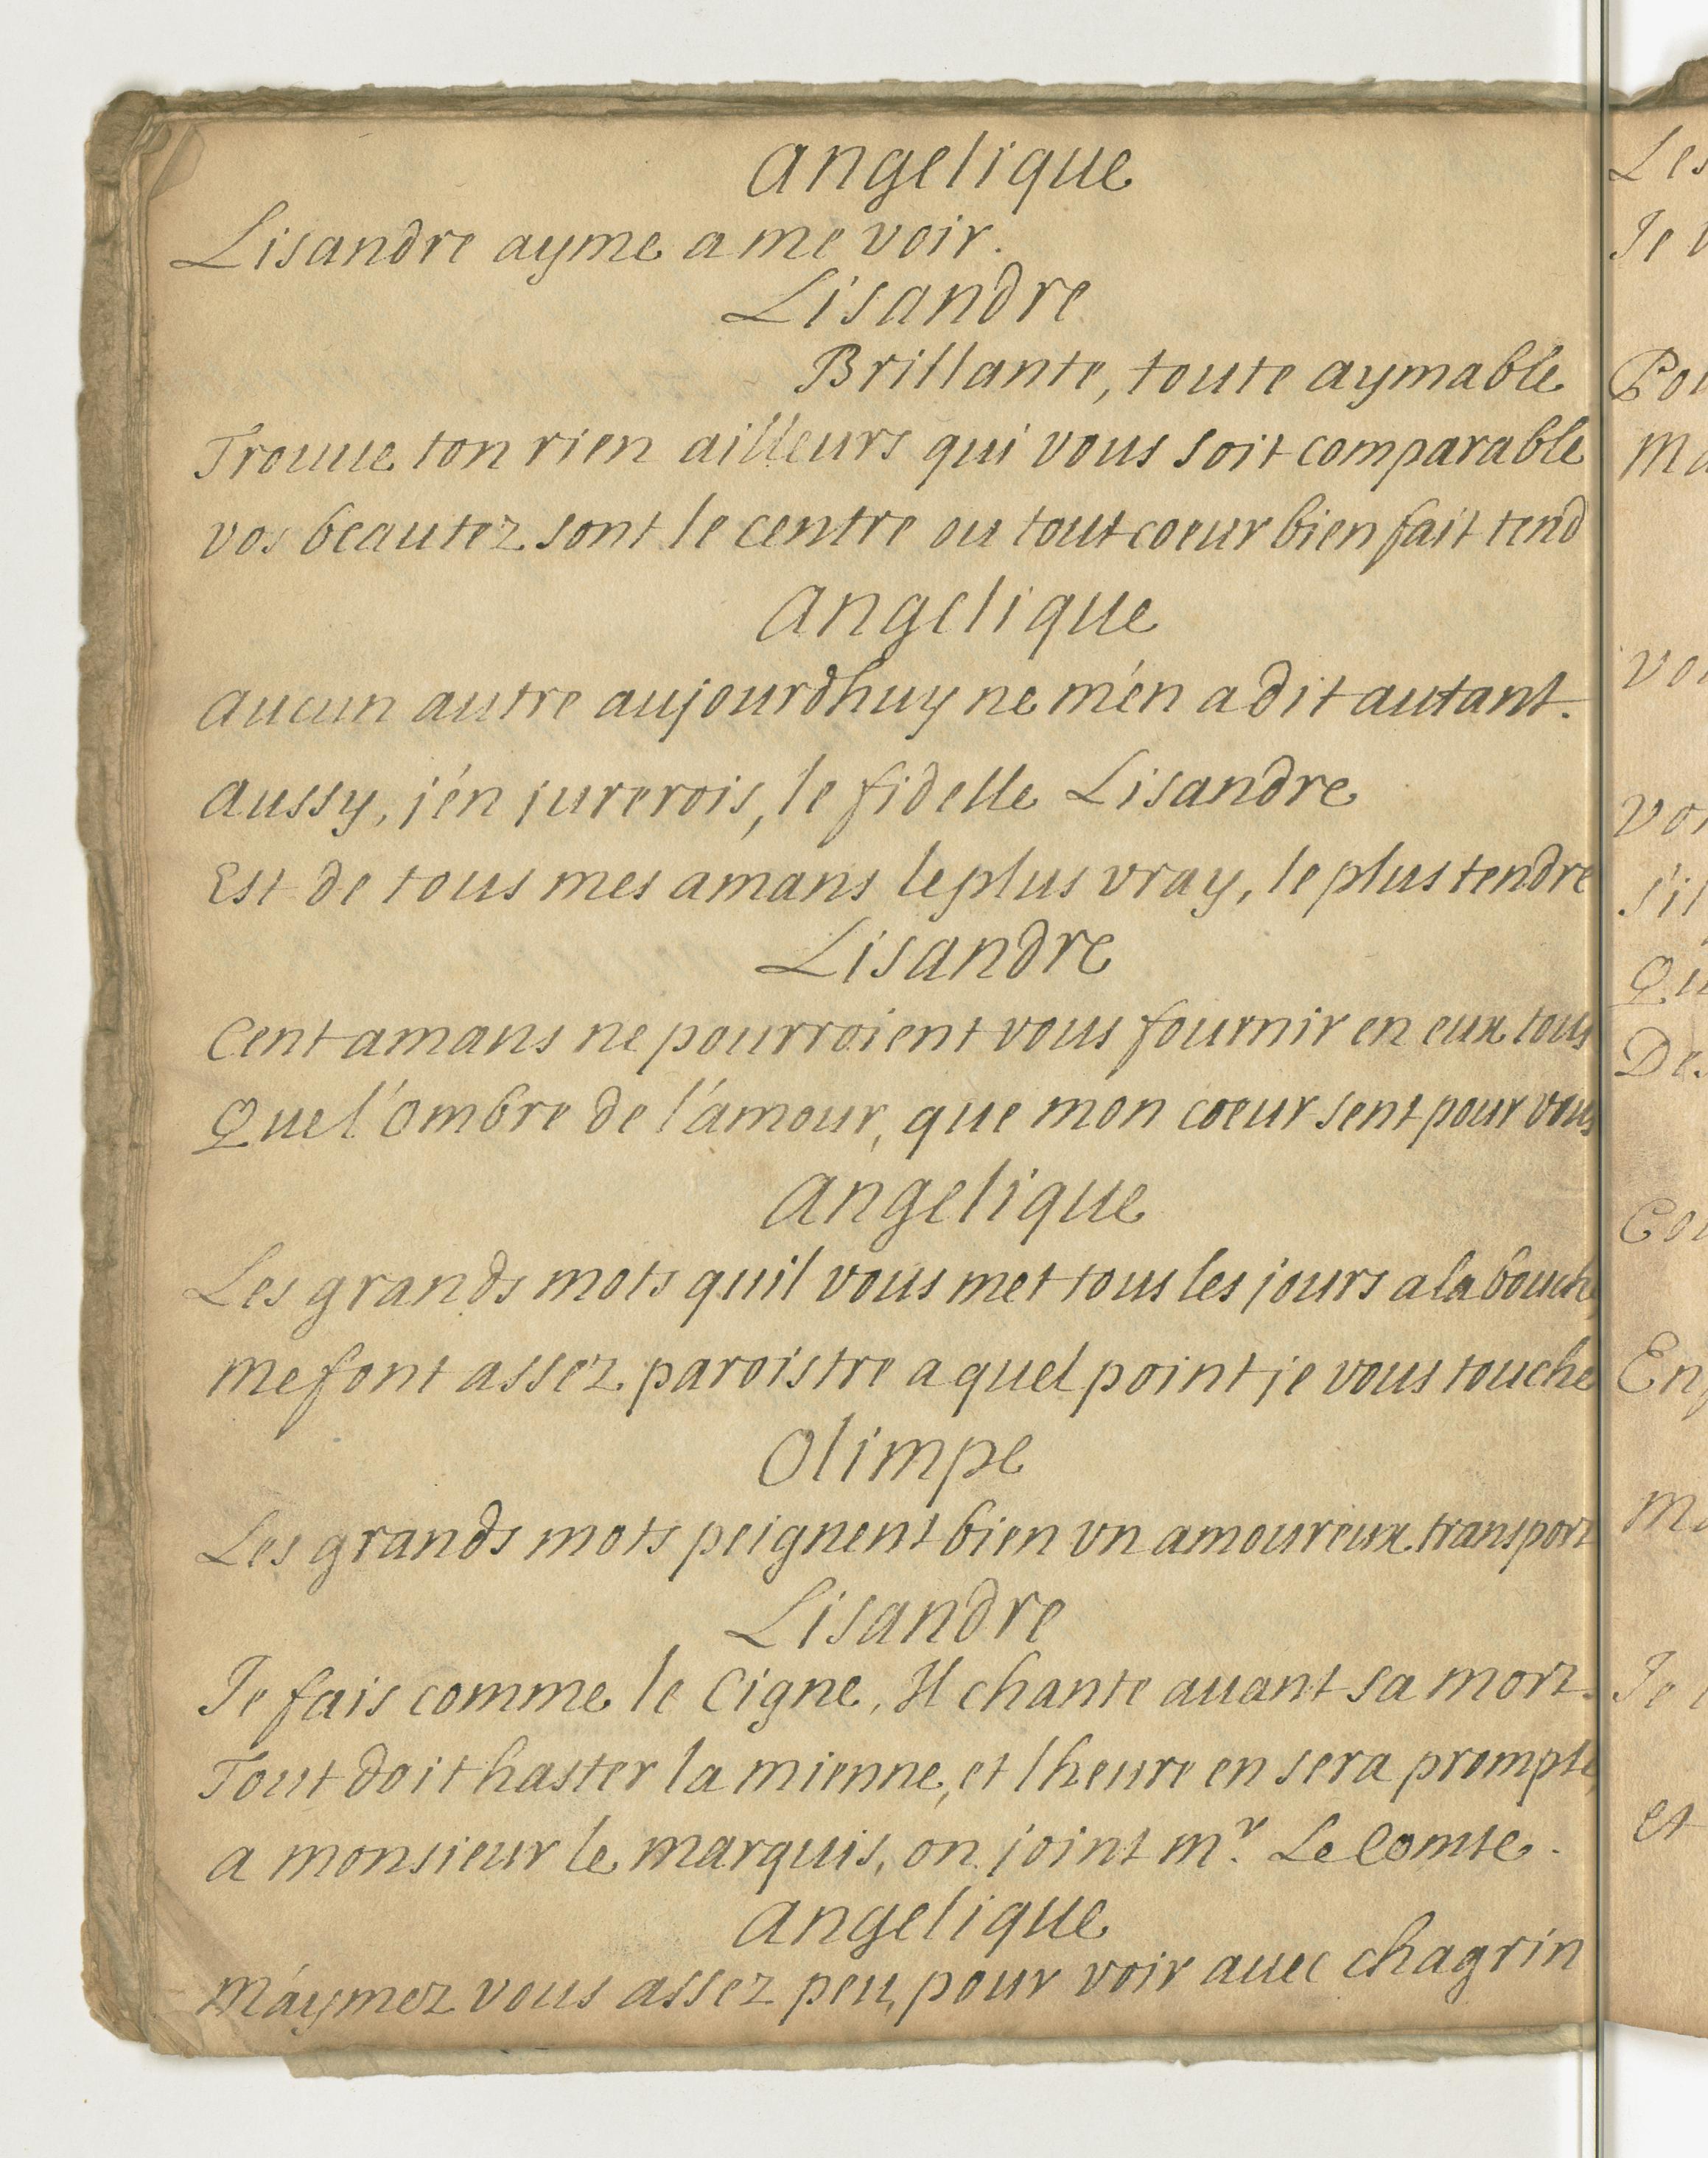 Angelique
Lisandre ayme a me voir.
Lisandre
Brillante, toute aymable
Trouue ton rien ailleurs qui vous soit comparable
vos beautez sont le centre ou tout coeur bien fait tend
Angelique
Aucun autre aujourdhuy ne m'en a dit autant.
Aussy, j'en jurerois, le fidelle Lisandre
Est de tous mes amans le plus vray, le plus tendre
Lisandre
Cent amans ne pourroient vous fournir en eux tous
Que l'ombre de l'amour, que mon coeur sent pour vous
Angelique
Les grands mots quil vous met tous les jours a la bouche
me font assez paroistre a quel point je vous touche
Olimpe
Les grands mots peignent bien vn amoureux transport
Lisandre
Je fais comme le Cigne, Il chante auant sa mort.
Tout doit haster la mienne, et lheure en sera prompte,
a monsieur le marquis, on joint mr. Le Comte.
Angelique
M'aymez vous assez peu, pour voir auec chagrin